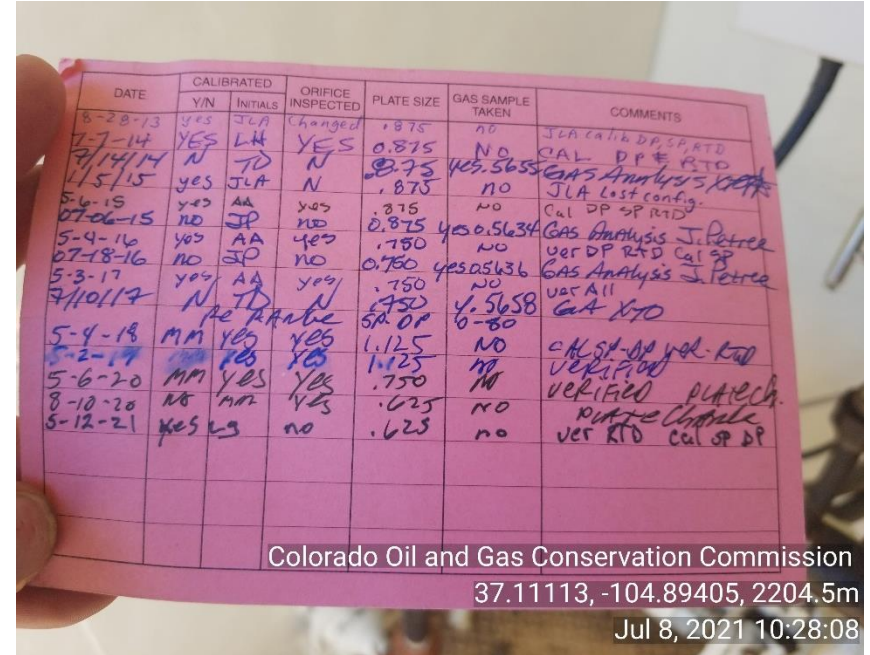 DATE CALIBRATED ORIFICE INSPECTED PLATE SIZE GAS SAMPLE TAKEN COMMENTS
Y/N INITIALS
8-28-13 yes JLA Changed .875 no JLA calib DP, SP, RTD
7-7-14 YES LH YES 0.875 NO CAL DP & RTD
7/14/14 N TD N .875 yes .5655 GAS Analysis
1/5/15 yes JLA N .875 no JLA Lost config.
5-6-15 yes AA yes .875 NO Cal DP SP RTD
07-06-15 no JP no 0.875 yes 0.5634 GAS Analysis J. Petree
5-4-16 yes AA yes .750 NO ver DP RTD Cal SP
07-18-16 no JP no 0.750 yes 0.5636 GAS Analysis J. Petree
5-3-17 yes AA yes .750 NO ver All
7/10/17 N TD N .750 Y .5658 GA XTO
Re RANGe SP-DP 0-80
5-4-18 MM yes yes 1.125 NO CAL SP-DP VER-RTD
5-2- yes yes 1.125 no VERIFIED
5-6-20 MM yes yes .750 NO VERIFIED PLATE Ch.
8-10-20 NO MM yes .625 NO PLATE Change
5-12-21 yes LG no .625 no ver RTD Cal SP DP
Colorado Oil and Gas Conservation Commission
37.11113, -104.89405, 2204.5m
Jul 8, 2021 10:28:08